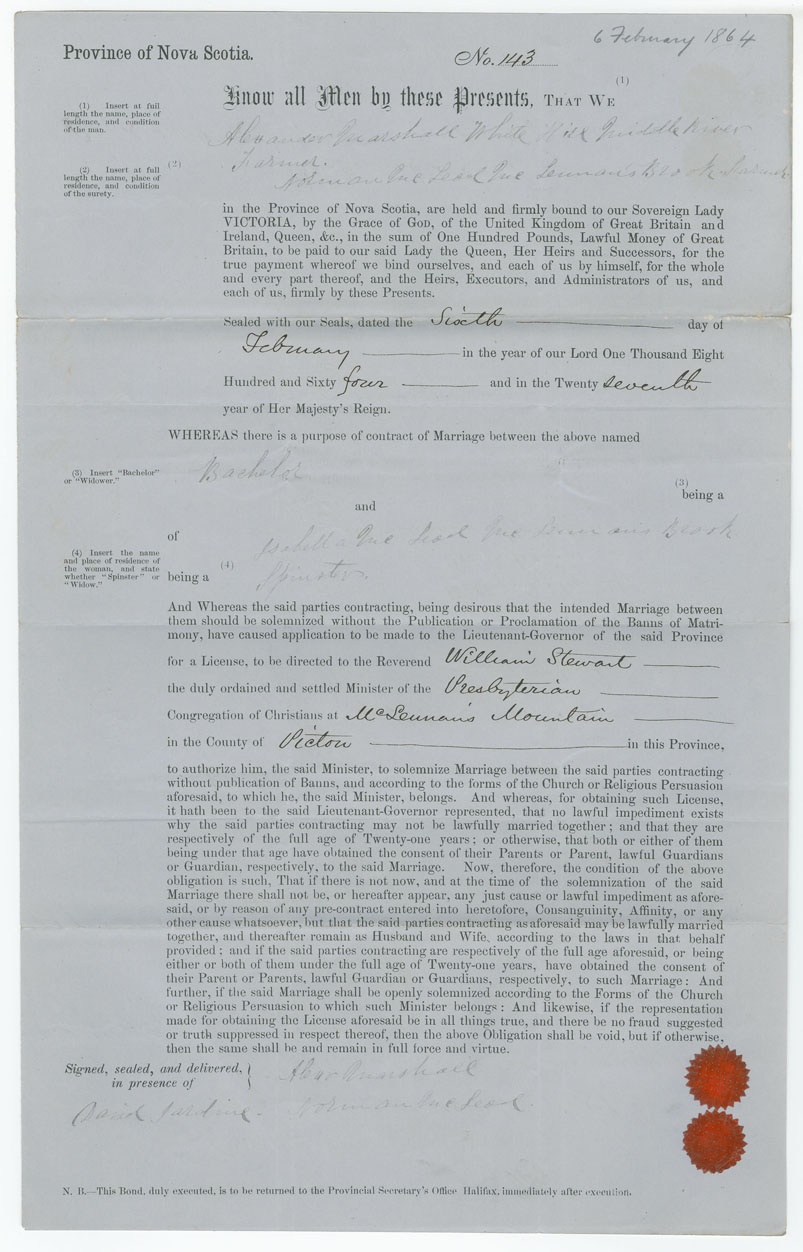 6 February 1864
Province of Nova Scotia.
No. 143
(1)
Know all Men by these Presents, THAT WE
(1) Insert at full
length the name, place of
residence, and condition
of the man.
Alexander Marshall White Hill Middle River
Farmer.
(2) Insert at full
length the name, place of
residence, and condition
of the surety.
(2)
Norman McLeod McLennans Brook Farmer
in the Province of Nova Scotia, are held and firmly bound to our Sovereign Lady
VICTORIA, by the Grace of GOD, of the United Kingdom of Great Britain and
Ireland, Queen, &c., in the sum of One Hundred Pounds, Lawful Money of Great
Britain, to be paid to our said Lady the Queen, Her Heirs and Successors, for the
true payment whereof we bind ourselves, and each of us by himself, for the whole
and every part thereof, and the Heirs, Executors, and Administrators of us, and
each of us, firmly by these Presents.
Sealed with our Seals, dated the Sixth day of
February in the year of our Lord One Thousand Eight
Hundred and Sixty four and in the Twenty seventh
year of Her Majesty's Reign.
WHEREAS there is a purpose of contract of Marriage between the above named
(3) Insert "Bachelor"
or "Widower."
Bachelor
(3)
being a
and
of Isabella McLeod McLennans Brook
(4) Insert the name
and place of residence of
the woman, and state
whether "Spinster" or
"Widow."
(4)
being a Spinster.
And Whereas the said parties contracting, being desirous that the intended Marriage between
them should be solemnized without the Publication or Proclamation of the Banns of Matri-
mony, have caused application to be made to the Lieutenant-Governor of the said Province
for a License, to be directed to the Reverend William Stewart
the duly ordained and settled Minister of the Presbyterian
Congregation of Christians at McLennans Mountain
in the County of Pictou in this Province,
to authorize him, the said Minister, to solemnize Marriage between the said parties contracting
without publication of Banns, and according to the forms of the Church or Religious Persuasion
aforesaid, to which he, the said Minister, belongs. And whereas, for obtaining such License,
it hath been to the said Lieutenant-Governor represented, that no lawful impediment exists
why the said parties contracting may not be lawfully married together; and that they are
respectively of the full age of Twenty-one years; or otherwise, that both or either of them
being under that age have obtained the consent of their Parents or Parent, lawful Guardians
or Guardian, respectively, to the said Marriage. Now, therefore, the condition of the above
obligation is such, That if there is not now, and at the time of the solemnization of the said
Marriage there shall not be, or hereafter appear, any just cause or lawful impediment as afore-
said, or by reason of any pre-contract entered into heretofore, Consanguinity, Affinity, or any
other cause whatsoever, but that the said parties contracting as aforesaid may be lawfully married
together, and thereafter remain as Husband and Wife, according to the laws in that behalf
provided: and if the said parties contracting are respectively of the full age aforesaid, or being
either or both of them under the full age of Twenty-one years, have obtained the consent of
their Parent or Parents, lawful Guardian or Guardians, respectively, to such Marriage: And
further, if the said Marriage shall be openly solemnized according to the Forms of the Church
or Religious Persuasion to which such Minister belongs: And likewise, if the representation
made for obtaining the License aforesaid be in all things true, and there be no fraud suggested
or truth suppressed in respect thereof, then the above Obligation shall be void, but if otherwise,
then the same shall be and remain in full force and virtue.
Signed, sealed, and delivered,
in presence of
Alexr Marshall
David Jardine. Norman McLeod.
N. B.—This Bond, duly executed, is to be returned to the Provincial Secretary's Office Halifax, immediately after execution.